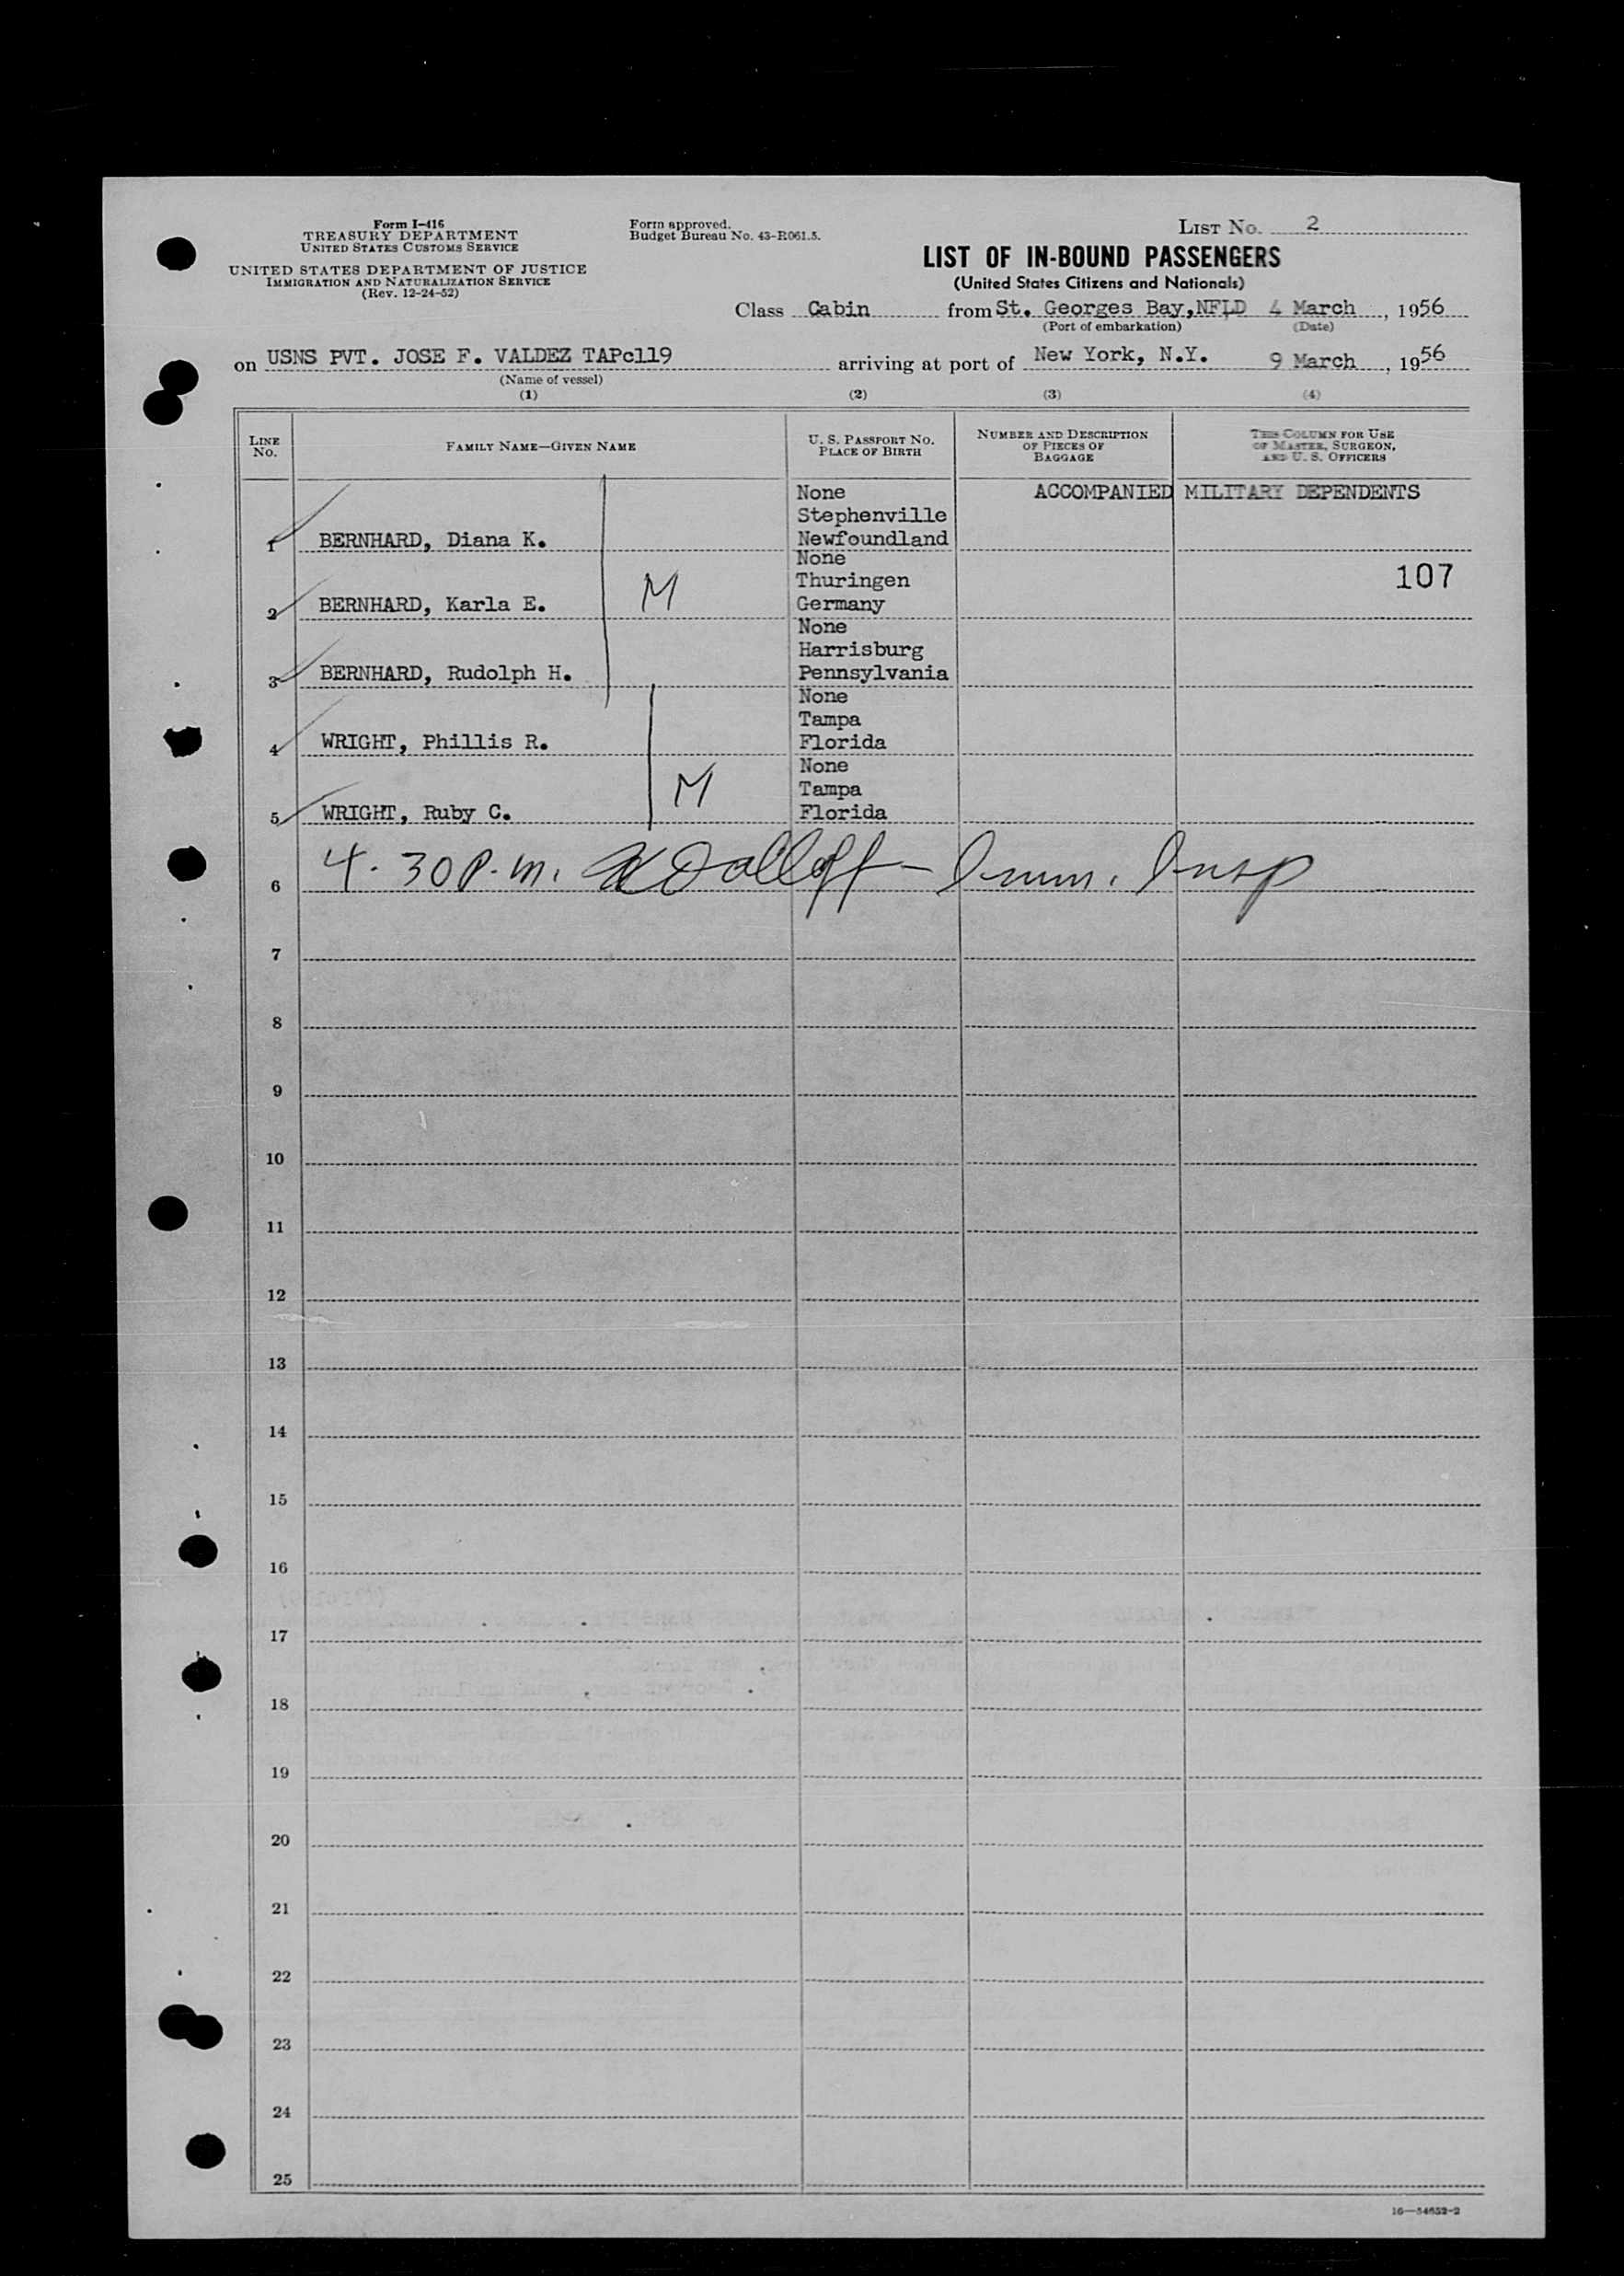 Form I-416
TREASURY DEPARTMENT
UNITED STATES CUSTOMS SERVICE
UNITED STATES DEPARTMENT OF JUSTICE
IMMIGRATION AND NATURALIZATION SERVICE
(Rev. 12-24-52)
Form approved.
Budget Bureau No. 43-R061.5.
LIST NO. 2
LIST OF IN-BOUND PASSENGERS
(United States Citizens and Nationals)
Class Cabin from St. Georges Bay, NFLD 4 March, 1956
(Port of embarkation) (Date)
on USNS PVT. JOSE F. VALDEZ TAPc119 arriving at port of New York, N.Y. 9 March, 1956
(Name of vessel)
(1) (2) (3) (4)
LINE NO.
FAMILY NAME—GIVEN NAME
U. S. PASSPORT NO.
PLACE OF BIRTH
NUMBER AND DESCRIPTION
OF PIECES OF
BAGGAGE
THIS COLUMN FOR USE
OF MASTER, SURGEON,
AND U. S. OFFICERS
None ACCOMPANIED MILITARY DEPENDENTS
Stephenville
1 BERNHARD, Diana K. Newfoundland
None
Thuringen 107
2 BERNHARD, Karla E. M Germany
None
Harrisburg
3 BERNHARD, Rudolph H. Pennsylvania
None
Tampa
4 WRIGHT, Phillis R. Florida
None
Tampa
5 WRIGHT, Ruby C. M Florida
6 4.30 P.m. Imm. Insp
7
8
9
10
11
12
13
14
15
16
17
18
19
20
21
22
23
24
25
16—54652-2